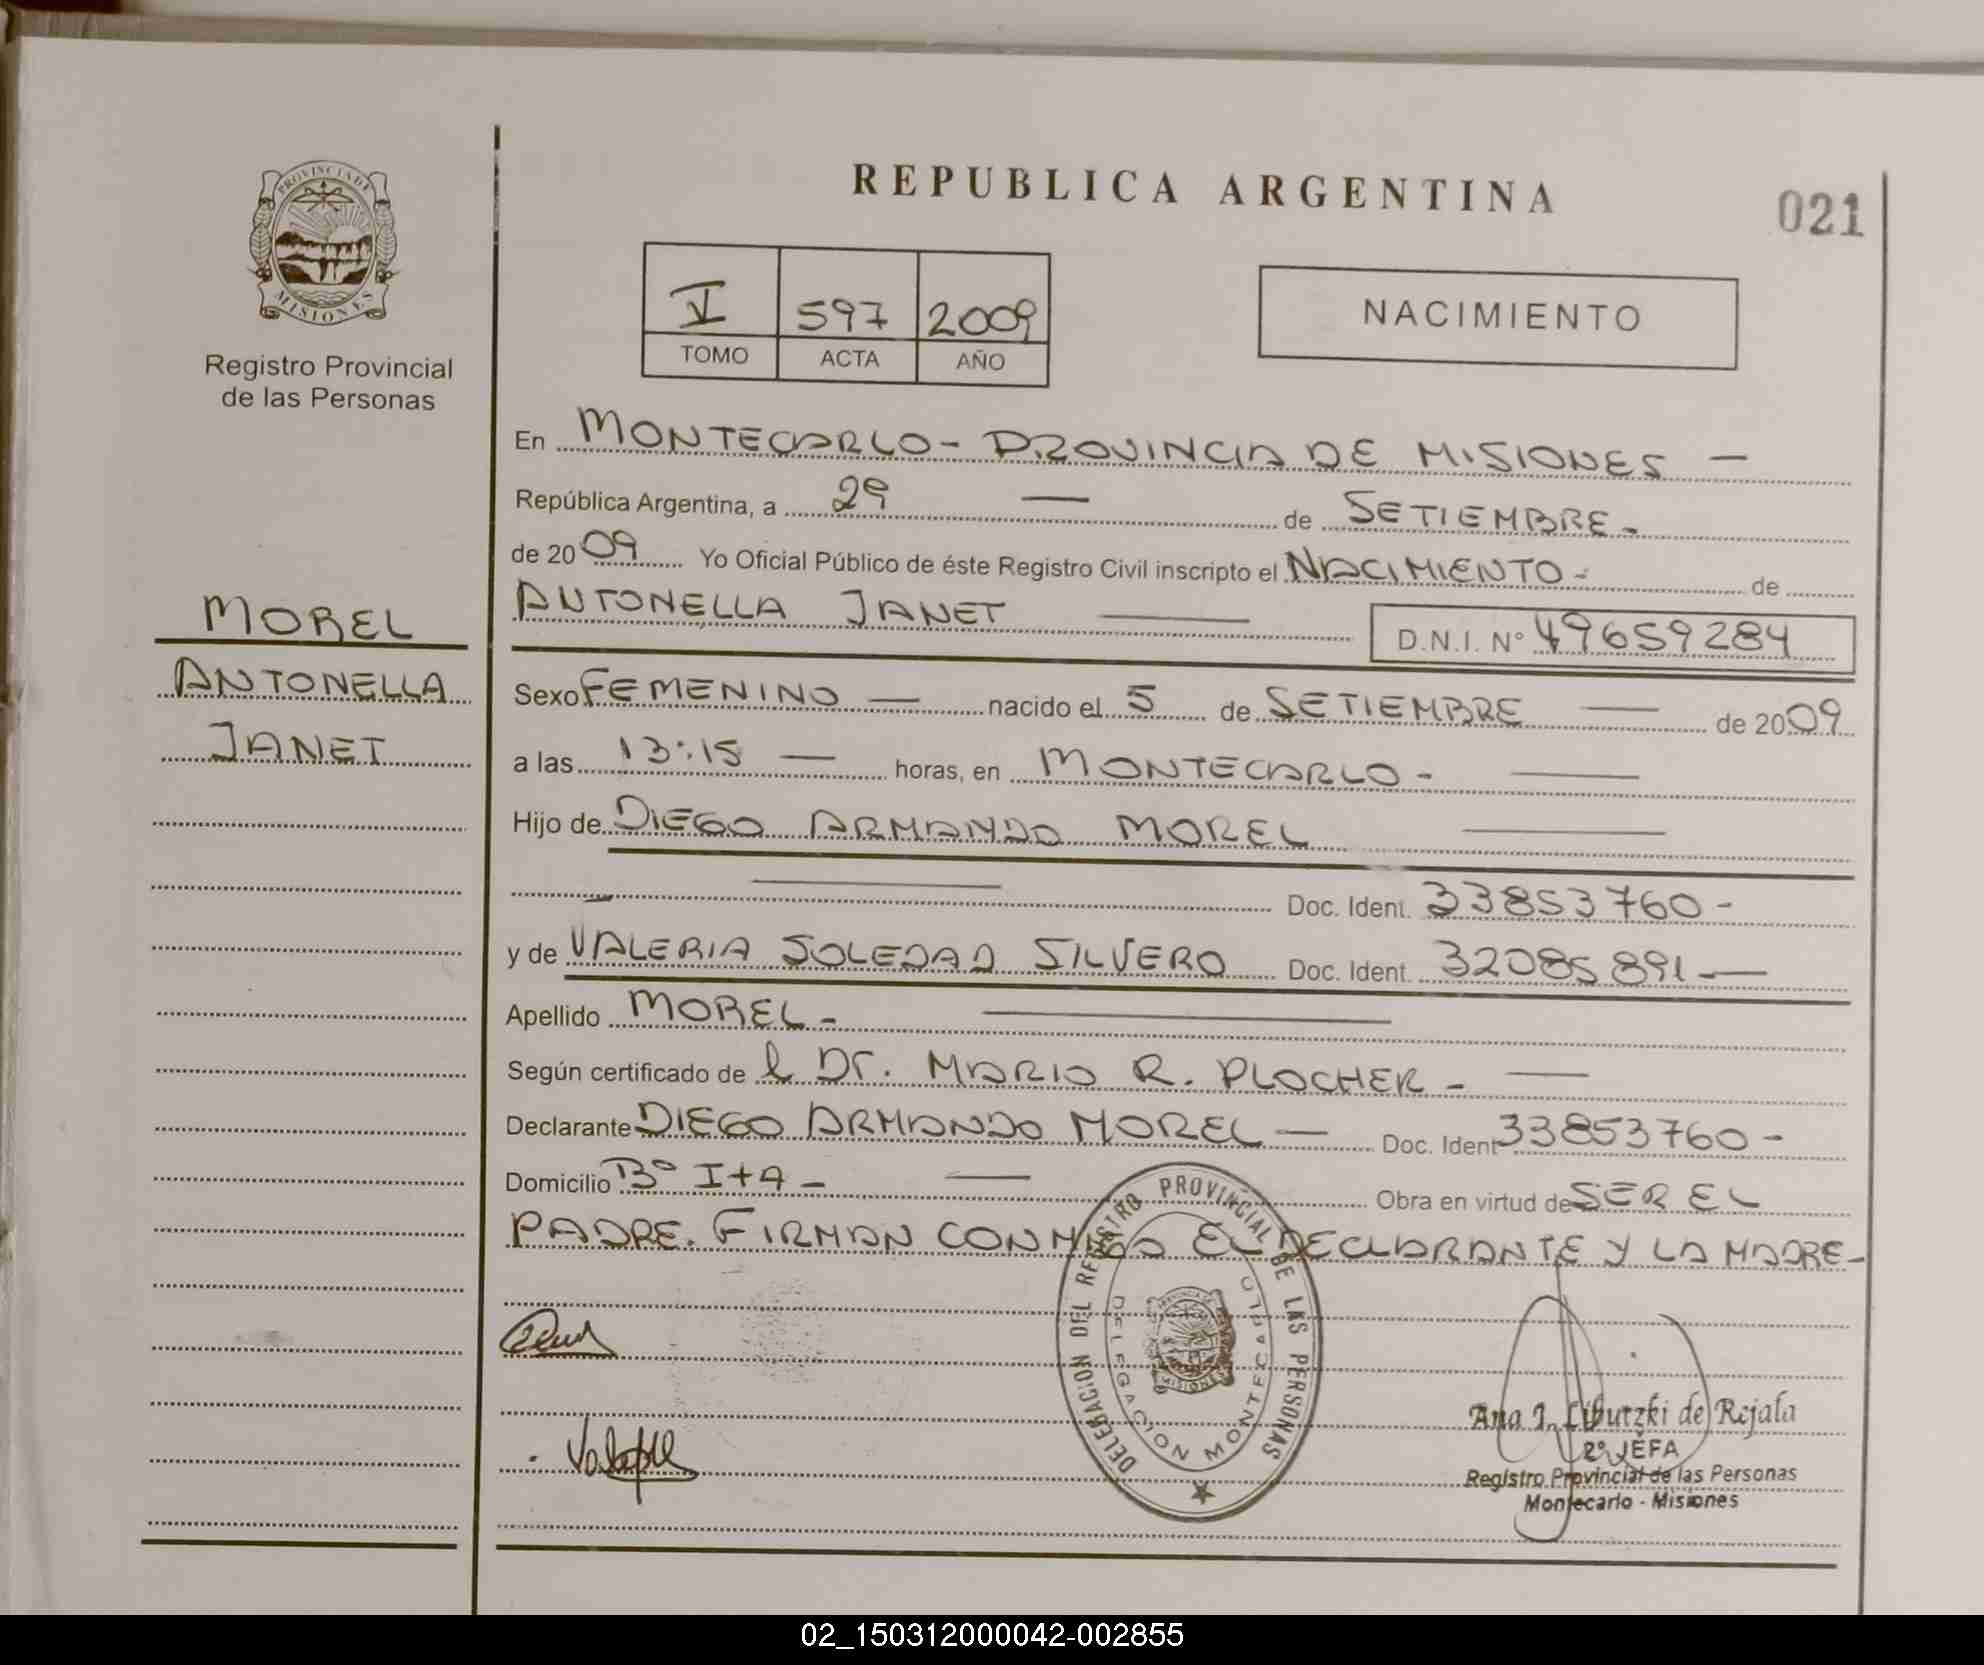 REPUBLICA ARGENTINA
021
PROVINCIA DE
MISIONES
Registro Provincial
de las Personas
V 597 2009
TOMO ACTA AÑO
NACIMIENTO
En MONTECARLO - PROVINCIA DE MISIONES -
República Argentina, a 29 — de SETIEMBRE -
de 2009 Yo Oficial Público de éste Registro Civil inscripto el NACIMIENTO - de
ANTONELLA JANET — D.N.I. Nº 49659284
MOREL
ANTONELLA
JANET
Sexo FEMENINO — nacido el 5 de SETIEMBRE — de 2009
a las 13:15 — horas, en MONTECARLO - —
Hijo de DIEGO ARMANDO MOREL —
— Doc. Ident. 33853760 -
y de VALERIA SOLEDAD SILVERO Doc. Ident. 32085891 —
Apellido MOREL - —
Según certificado de l Dr. MARIO R. PLOCHER - —
Declarante DIEGO ARMANDO MOREL — Doc. Ident 33853760 -
Domicilio Bº ITA - — Obra en virtud de SER EL
PADRE. FIRMAN CONMIGO EL DECLARANTE Y LA MADRE -
DELEGACION DEL REGISTRO PROVINCIAL DE LAS PERSONAS
DELEGACION MONTECARLO
MISIONES
Ana I. Libutzki de Rejala
2º JEFA
Registro Provincial de las Personas
Montecarlo - Misiones
02_150312000042-002855